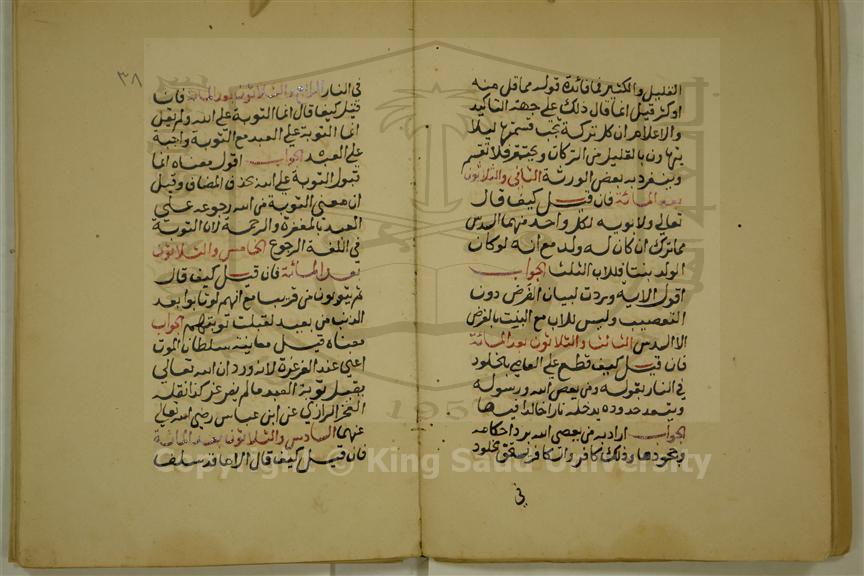 القليل والكثير فما فائدة قوله مما قل منه
او كثر قيل انما قال ذلك على جهة التأكيد
والاعلام ان كل تركة تجب قسمتها ليلا
يتهاون بالقليل من التركات ويحتقر فلا تقسم
وينفرد به بعض الورثة الثاني والثلاثون
بعد المائة فان قيل كيف قال
تعالى ولابويه لكل واحد منهما السدس
مما ترك ان كان له ولد مع انه لو كان
الولد بنتا فللاب الثلث الجواب
اقول الاية وردت لبيان الفرض دون
التعصيب وليس للاب مع البنت بالفرض
الا السدس الثالث والثلاثون بعد المائة
فان قيل كيف قطع على العاصي بالخلود
في النار بقوله ومن يعص الله ورسوله
ويتعد حدوده يدخله نارا خالدا فيها
الجواب اراد به من يعصي الله برد احكامه
وجحودها وذلك كافر والكافر يستحق الخلود
في
٣٨
في النار الرابع والثلاثون بعد المائة فان
قيل كيف قال انما التوبة على الله ولم يقل
انما التوبة على العبد مع التوبة واجبة
على العبد الجواب اقول معناه انما
قبول التوبة على الله بحذف المضاف وقيل
ان معنى التوبة من الله رجوعه على
العبد بالمغفرة والرحمة لان التوبة
في اللغة الرجوع الخامس والثلاثون
بعد المائة فان قيل كيف قال
ثم يتوبون من قريب مع انهم لو تابوا بعد
الذنب من بعيد لقبلت توبتهم الجواب
معناه قبل معاينة سلطان الموت
اعني عند الغرغرة لانه ورد ان الله تعالى
يقبل توبة العبد ما لم يغرغر كذا نقله
الفخر الرازي عن ابن عباس رضي الله تعالى
عنهما السادس والثلاثون بعد المائة
فان قيل كيف قال الا ما قد سلف
1957
Copyright © King Saud University